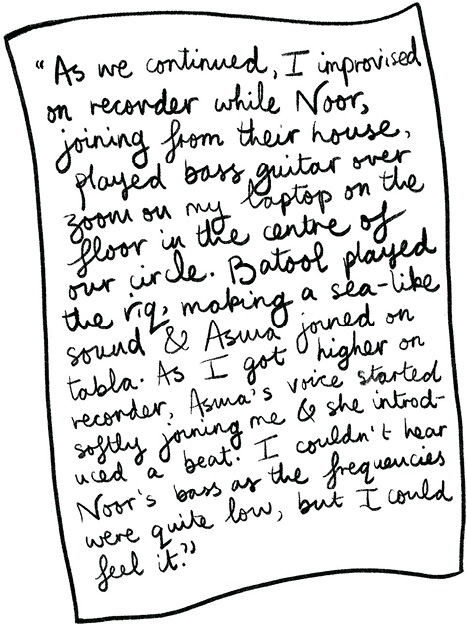 “As we continued, I improvised
on recorder while Noor,
joining from their house,
played bass guitar over
zoom on my laptop on the
floor in the centre of
our circle. Batool played
the riq, making a sea-like
sound & Asma joined on
tabla. As I got higher on
recorder, Asma's voice started
softly joining me & she introd-
uced a beat. I couldn't hear
Noor's bass as the frequencies
were quite low, but I could
feel it.”